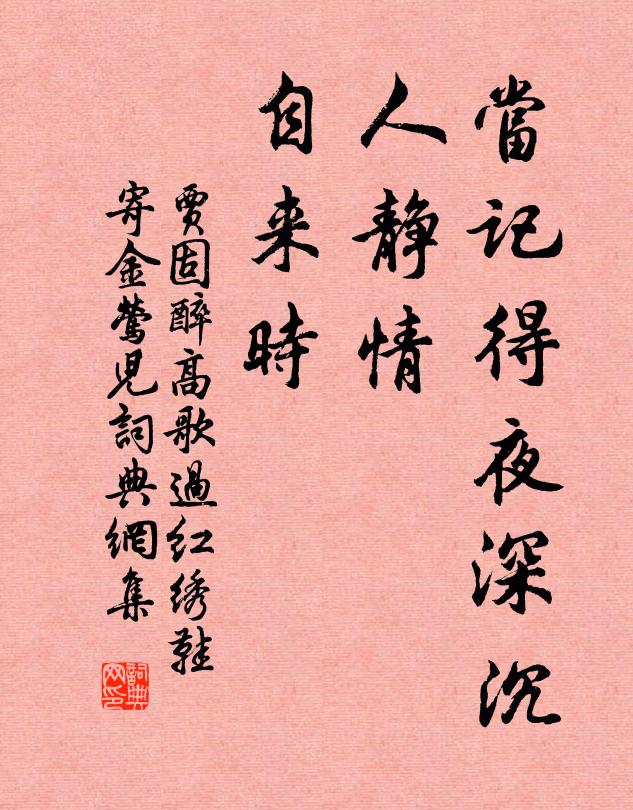 當記得夜深沉
人靜情
自来時
賈固醉高歌過红绣鞋
寄金鶯児詞典網集
詞典
网印